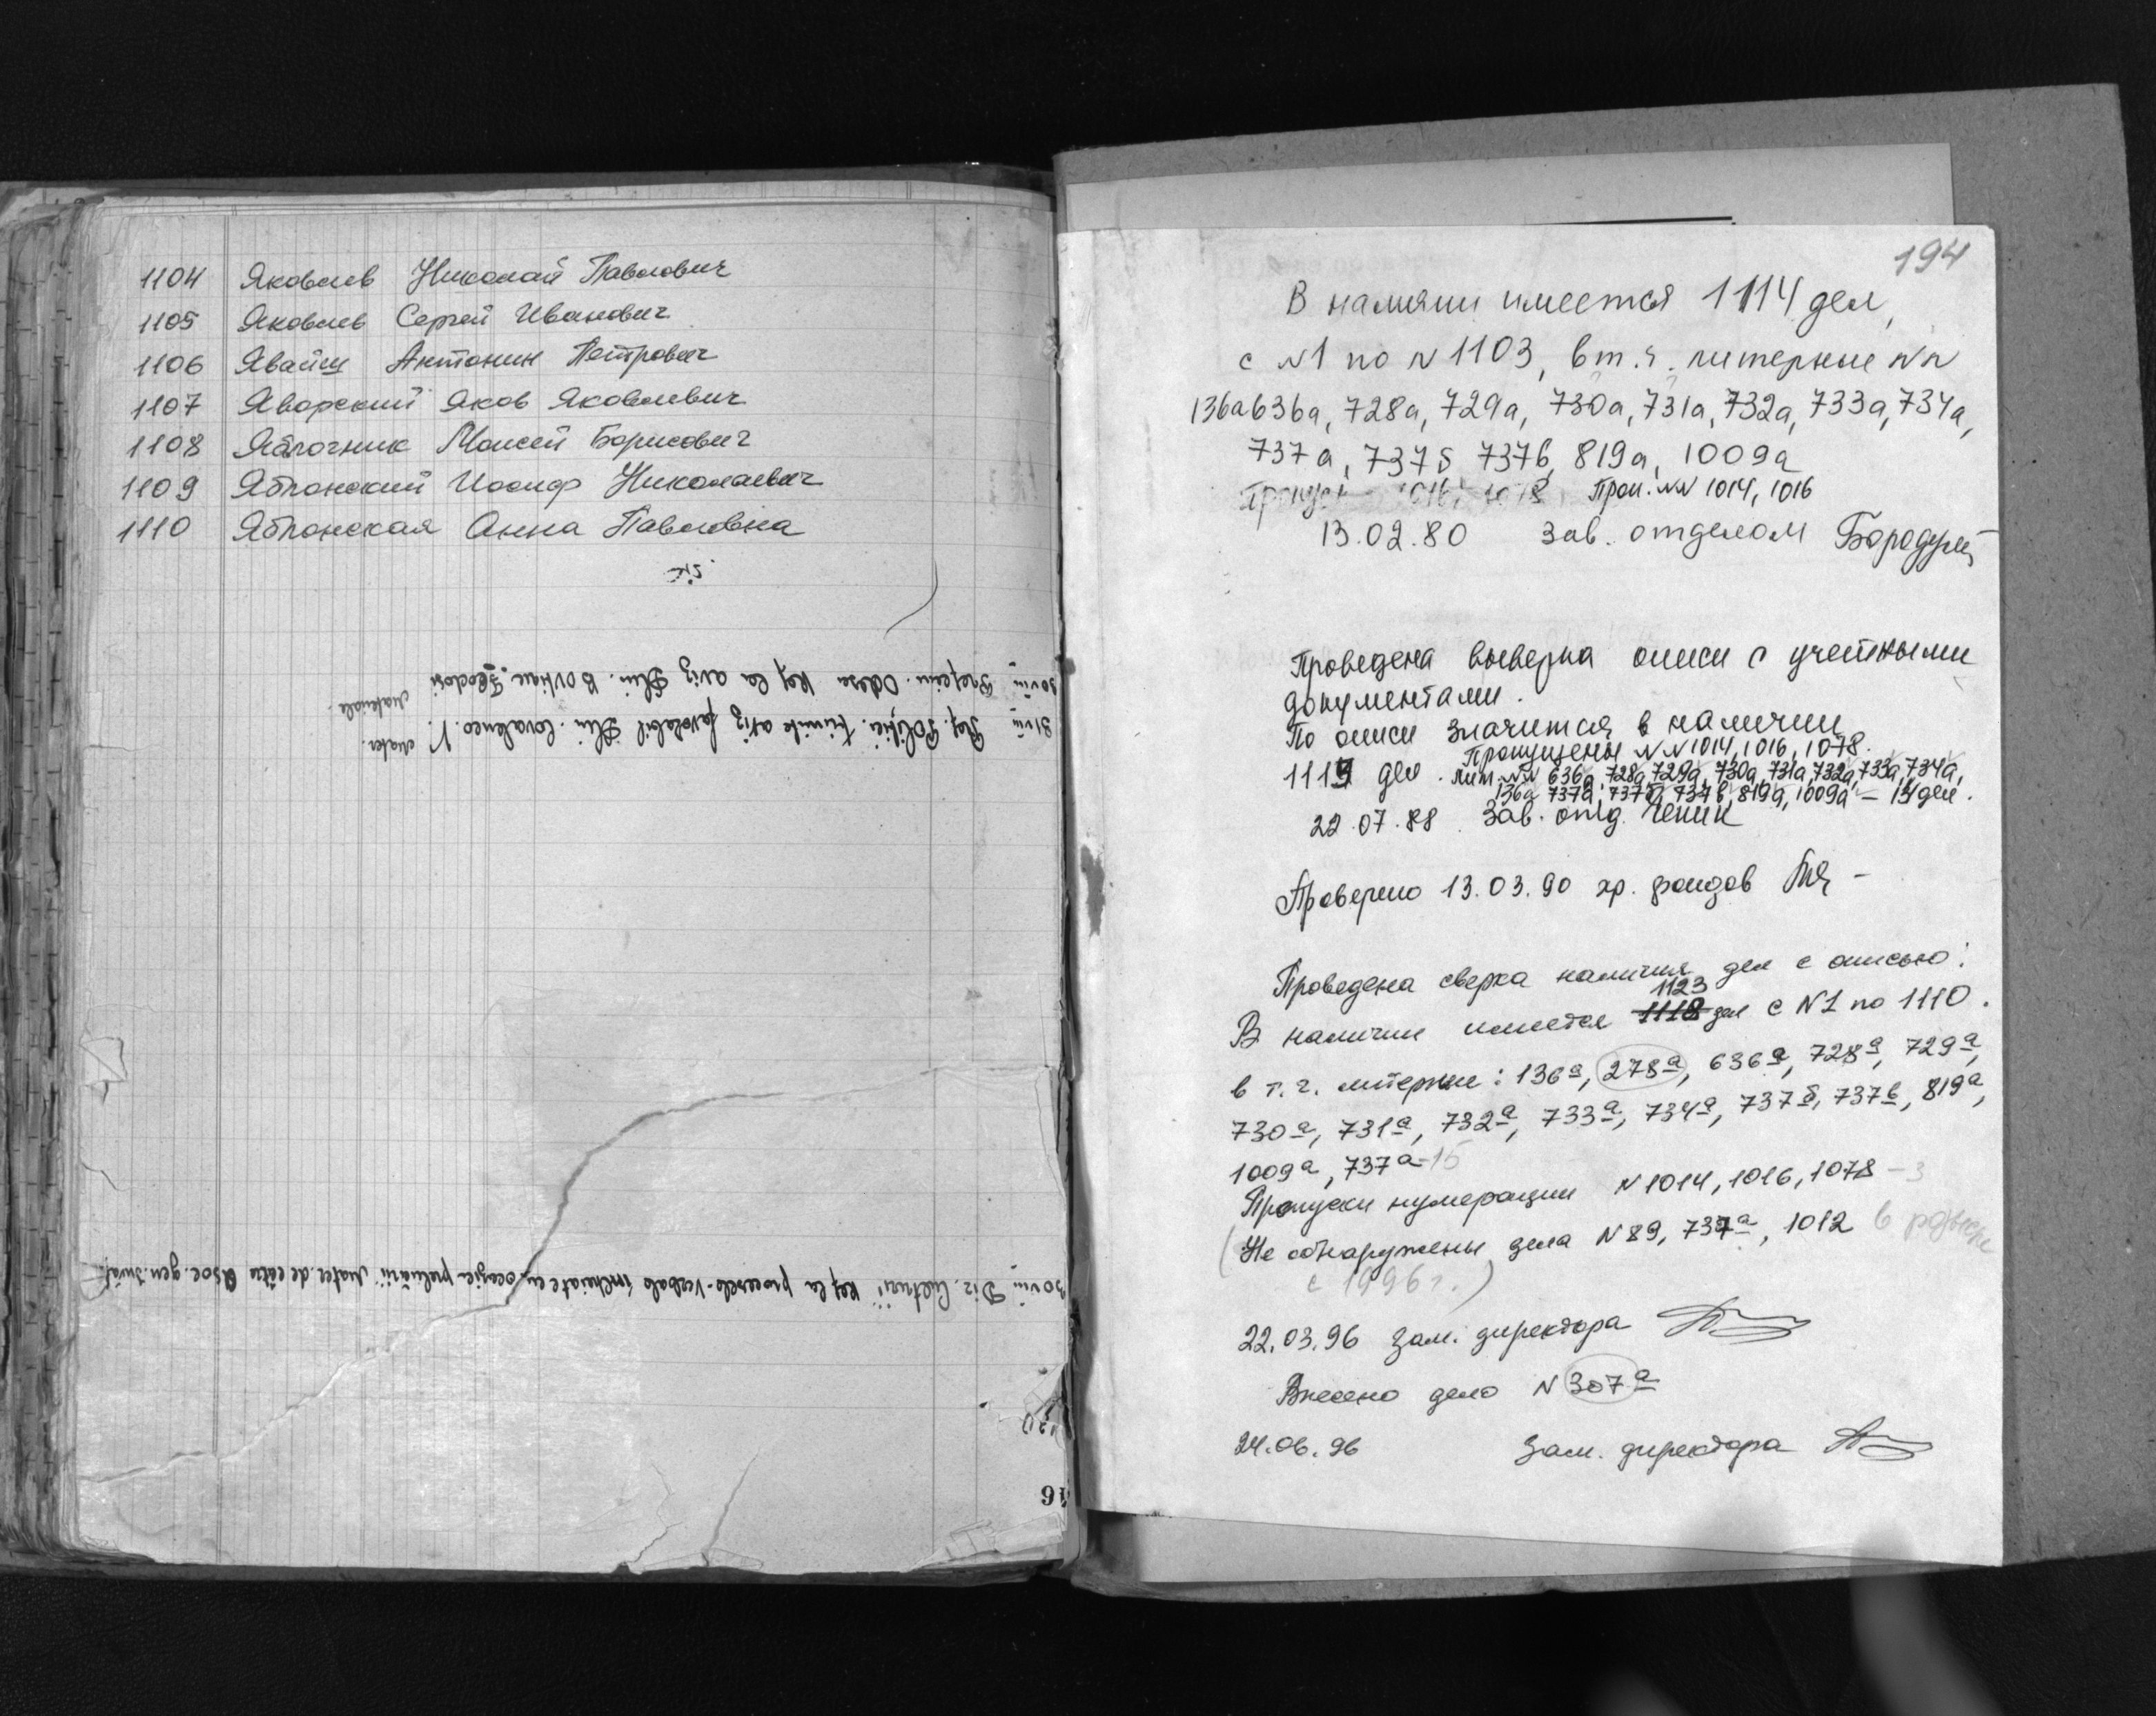 1104 Яковлев Николай Павлович
1105 Яковлев Сергей Иванович
1106 Явайш Антонин Петрович
1107 Яворский Яков Яковлевич
1108 Яблочник Моисей Борисович
1109 Яблонский Иосиф Николаевич
1110 Яблонская Анна Павловна
31 VIII Ref. Poliției. trimite aviz favorabil Dlui. Covalenco. V.
30 VIII Odesa Ref la aviz Dlui. Feodosi
30 VIII Dir. Culturii Ref la procesele-verbale încheiate cu ocazia preluării Mater. de către Asoc. gen.
16
194
В наличии имеется 1114 дел,
с №1 по №1103, в т.ч. литерные №№
136а 636а, 728а, 729а, 730а, 731а, 732а, 733а, 734а,
737а, 737б 737в, 819а, 1009а
Проп. №№ 1014, 1016
13.02.80 Зав. отделом
Проведена выверка описи с учетными
документами.
По описи значится в наличии
Пропущены №№ 1014, 1016, 1078.
дел. лит. №№ 636а, 728а, 729а, 730а, 731а, 732а, 733а, 734а,
136а 737а, 737б, 737в, 819а, 1009а – дел.
22.07.88. Зав. отд.
Проверено 13.03.90 хр. фондов
Проведена сверка наличия дел с описью:
1123
В наличии имеется 1118 дел с №1 по 1110.
в т.ч. литерные: 136а, 278а, 636а, 728а, 729а,
730а, 731а, 732а, 733а, 734а, 737б, 737в, 819а,
1009а, 737а-15
Пропуски нумерации №1014, 1016, 1078 – 3
(Не обнаружены дела №89, 737а, 1012 в розыске
с 1996 г.)
22.03.96 Зам. директора
Внесено дело №307а
24.06.96 Зам. директора